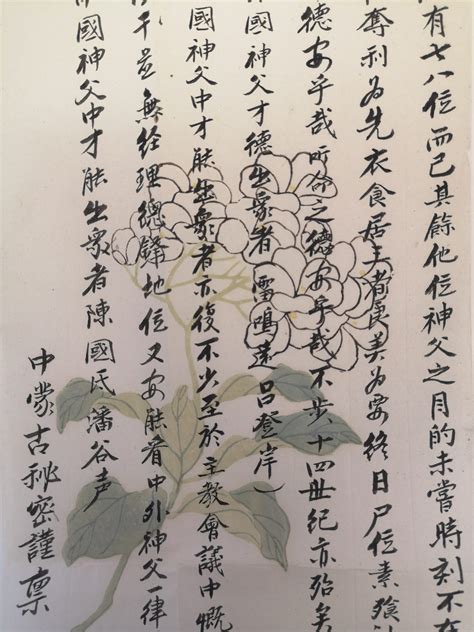 有七八位而已其餘他位神父之目的未嘗時刻不在
奪利為先衣食居主者畏美為要終日尸位素飱
德安乎哉所命之德安乎哉不步十四世紀亦殆矣
國神父才德出眾者（雷鳴遠呂登岸）
國神父中才能出眾者亦復不少至於主教會議中慨
干並無經理總鐸地位又安能肴中外神父一律
國神父中才能出眾者陳國氏潘谷声
中蒙古秘密謹禀